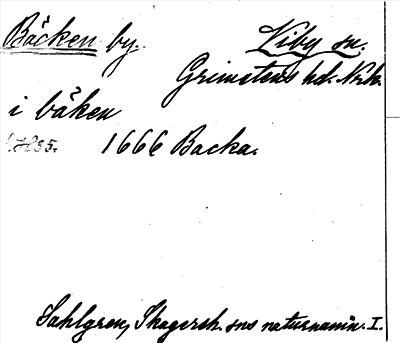 Bäcken by. Viby sn.
Grimstens hd. Nrk.
i båken
1666 Backa.
Sahlgren, Skagersh. sns naturnamn. I.